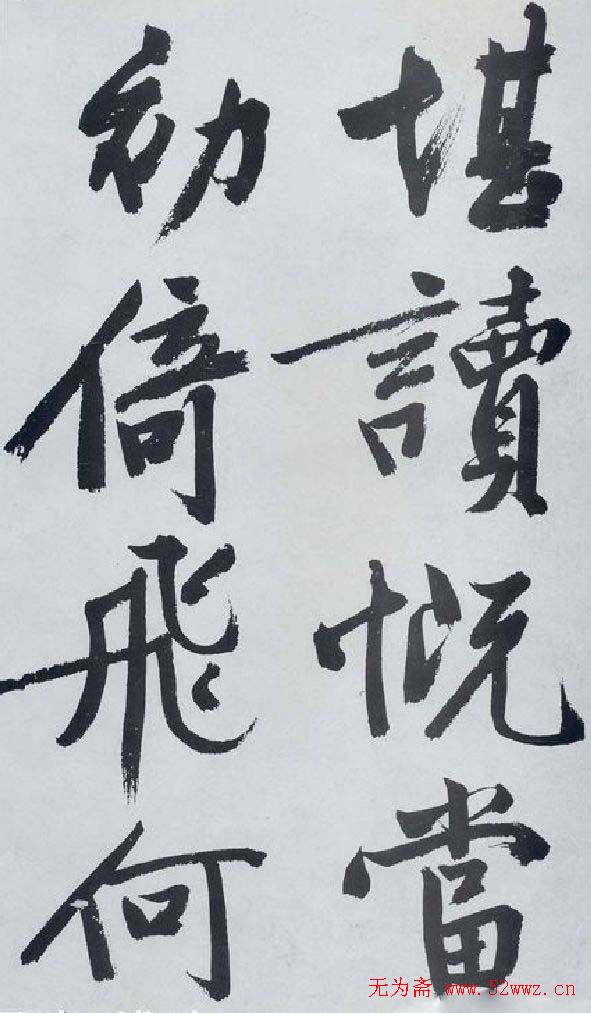 堪讀慨當
初倚飛何
无为斋 www.52wwz.cn